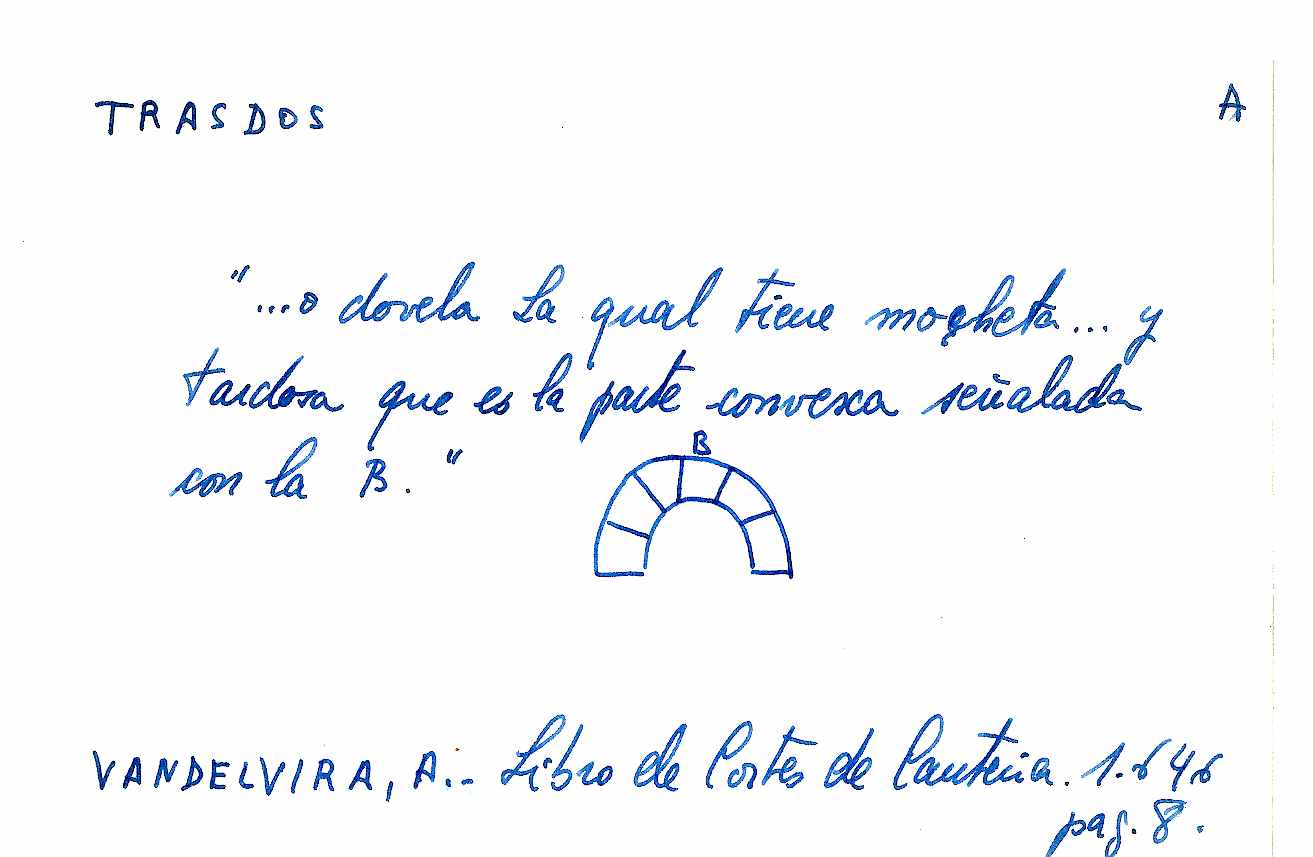 TRASDOS A
"...o dovela La qual tiene mocheta... y
tardosa que es la parte convexa señalada
con la B."
B
VANDELVIRA, A.- Libro de Cortes de Cantería. 1.646
pag. 8.